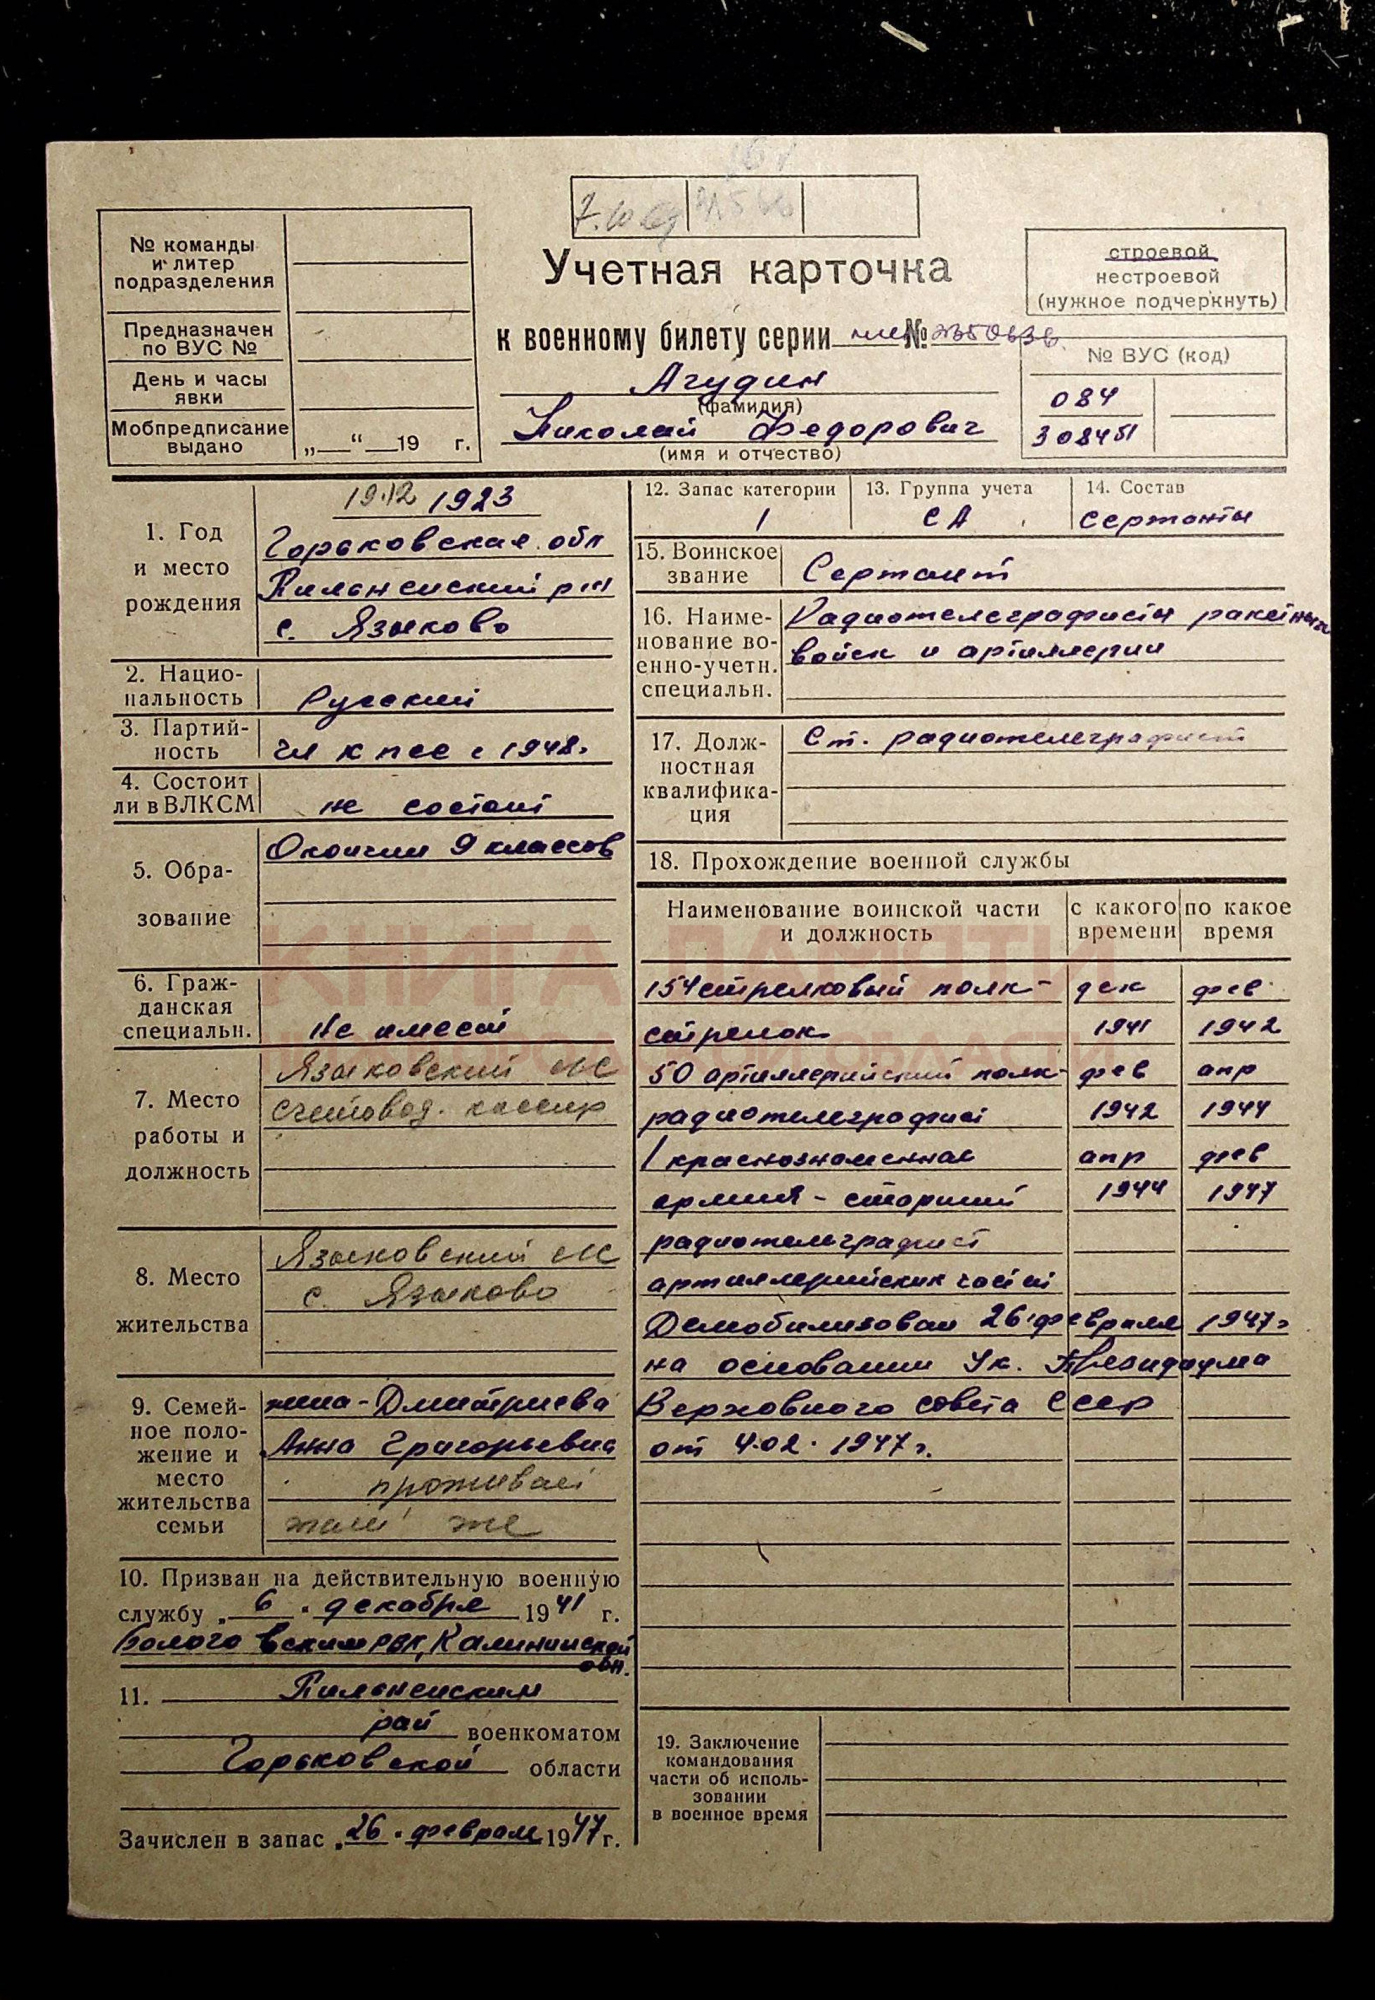 7.10.69
№ команды
и литер
подразделения
Предназначен
по ВУС №
День и часы
явки
Мобпредписание
выдано
„ “ 19 г.
Учетная карточка
к военному билету серии №
Агудин
(фамилия)
Николай Федорович
(имя и отчество)
строевой
нестроевой
(нужное подчеркнуть)
№ ВУС (код)
084
308451
1. Год
и место
рождения
19.12 1923
Горьковская обл
Пильненский р-н
с. Языково
2. Нацио-
нальность
Русский
3. Партий-
ность
чл КПСС с 1948г
4. Состоит
ли в ВЛКСМ
не состоит
5. Обра-
зование
Окончил 9 классов
6. Граж-
данская
специальн.
Не имеет
7. Место
работы и
должность
Языковский с/с
счетовод. кассир
8. Место
жительства
Языковский с/с
с. Языково
9. Семей-
ное поло-
жение и
место
жительства
семьи
жена - Дмитриева
Анна Григорьевна
проживает
там же
10. Призван на действительную военную
службу „ 6 “ декабря 1941 г.
Бологовским РВК, Калининской
обл.
11. Пильненским
рай военкоматом
Горьковской области
Зачислен в запас „ 26 “ февраля 1947 г.
12. Запас категории
1
13. Группа учета
СА
14. Состав
сержанты
15. Воинское
звание
Сержант
16. Наиме-
нование во-
енно-учетн.
специальн.
Радиотелеграфисты ракетных
войск и артиллерии
17. Долж-
ностная
квалифика-
ция
Ст. радиотелеграфист
18. Прохождение военной службы
Наименование воинской части
и должность
с какого
времени
по какое
время
154 стрелковый полк - дек фев
стрелок 1941 1942
50 артиллерийский полк - фев апр
радиотелеграфист 1942 1944
1 краснознаменная апр фев
армия - старший 1944 1947
радиотелеграфист
артиллерийских частей
Демобилизован 26 февраля 1947г
на основании Ук. Президиума
Верховного совета СССР
от 4.02.1947г.
19. Заключение
командования
части об исполь-
зовании
в военное время
КНИГА ПАМЯТИ
НИЖЕГОРОДСКОЙ ОБЛАСТИ